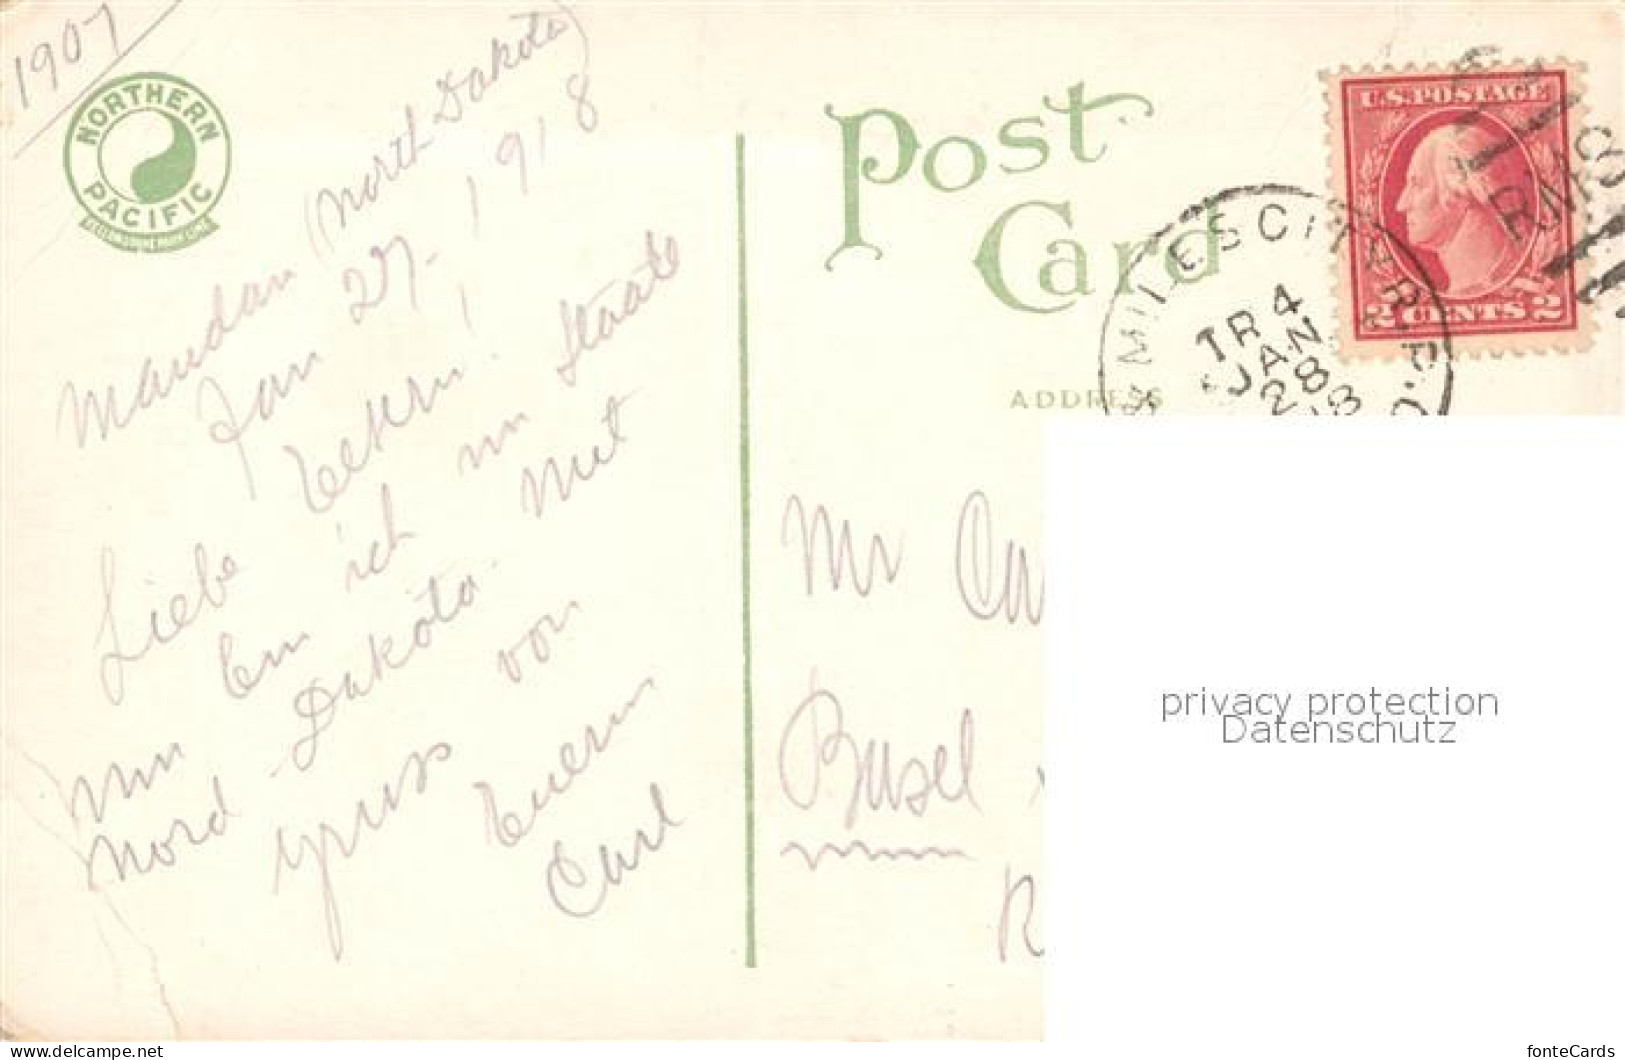 1907
NORTHERN
PACIFIC
Mandan (North Dakota)
Jan 27. 1918
Liebe Eltern!
bin ich im Staate
Nord-Dakota. Mit
gruss von
Euerm
Carl
Post
Card
MILES CITY AR. R.P.O.
TR 4
JAN
28
18
RMS
U.S.POSTAGE
2 CENTS 2
ADDRESS
Mr Ca
Basel
R
privacy protection
Datenschutz
www.delcampe.net
fonteCards